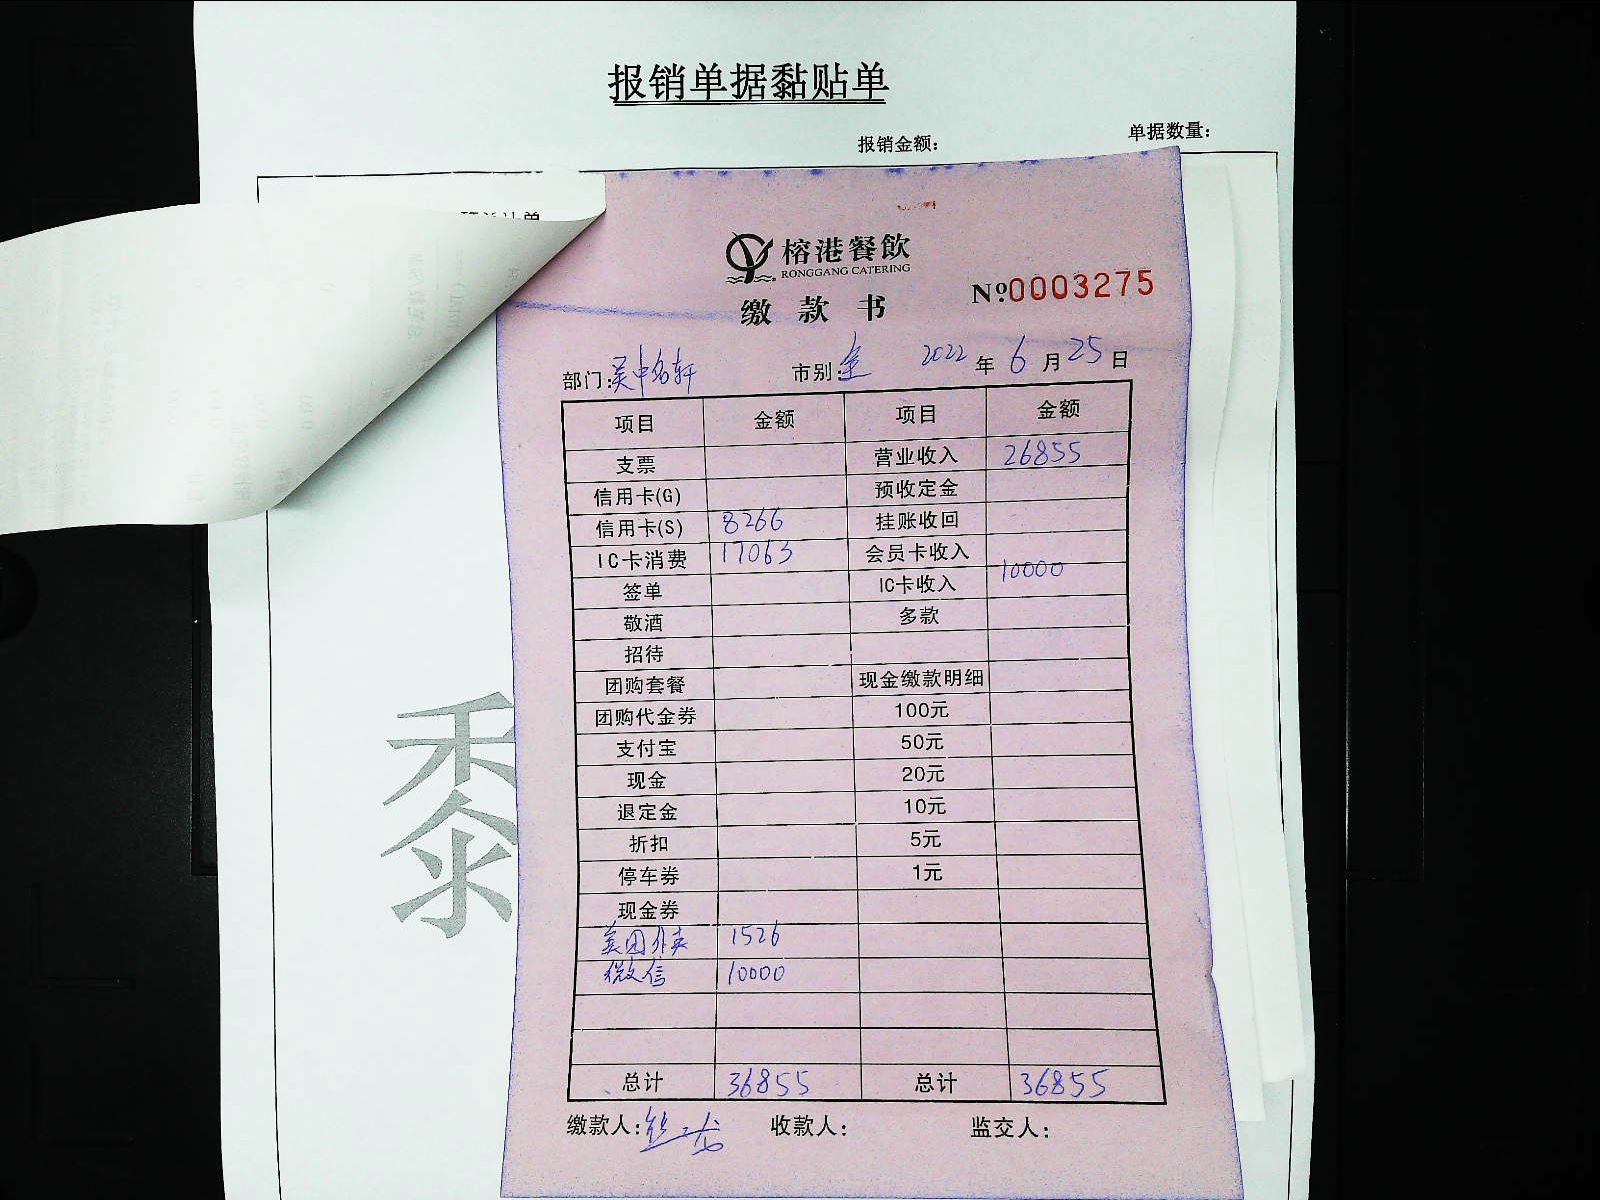 报销单据黏贴单
报销金额： 单据数量：
榕港餐飲
RONGGANG CATERING
缴款书 Nº0003275
部门：吴中名轩 市别：全 2022年6月25日
项目 金额 项目 金额
支票 营业收入 26855
信用卡(G) 预收定金
信用卡(S) 8266 挂账收回
IC卡消费 17063 会员卡收入
签单 IC卡收入 10000
敬酒 多款
招待
团购套餐 现金缴款明细
团购代金券 100元
支付宝 50元
现金 20元
退定金 10元
折扣 5元
停车券 1元
现金券
美团外卖 1526
微信 10000
总计 36855 总计 36855
缴款人： 收款人： 监交人：
黏